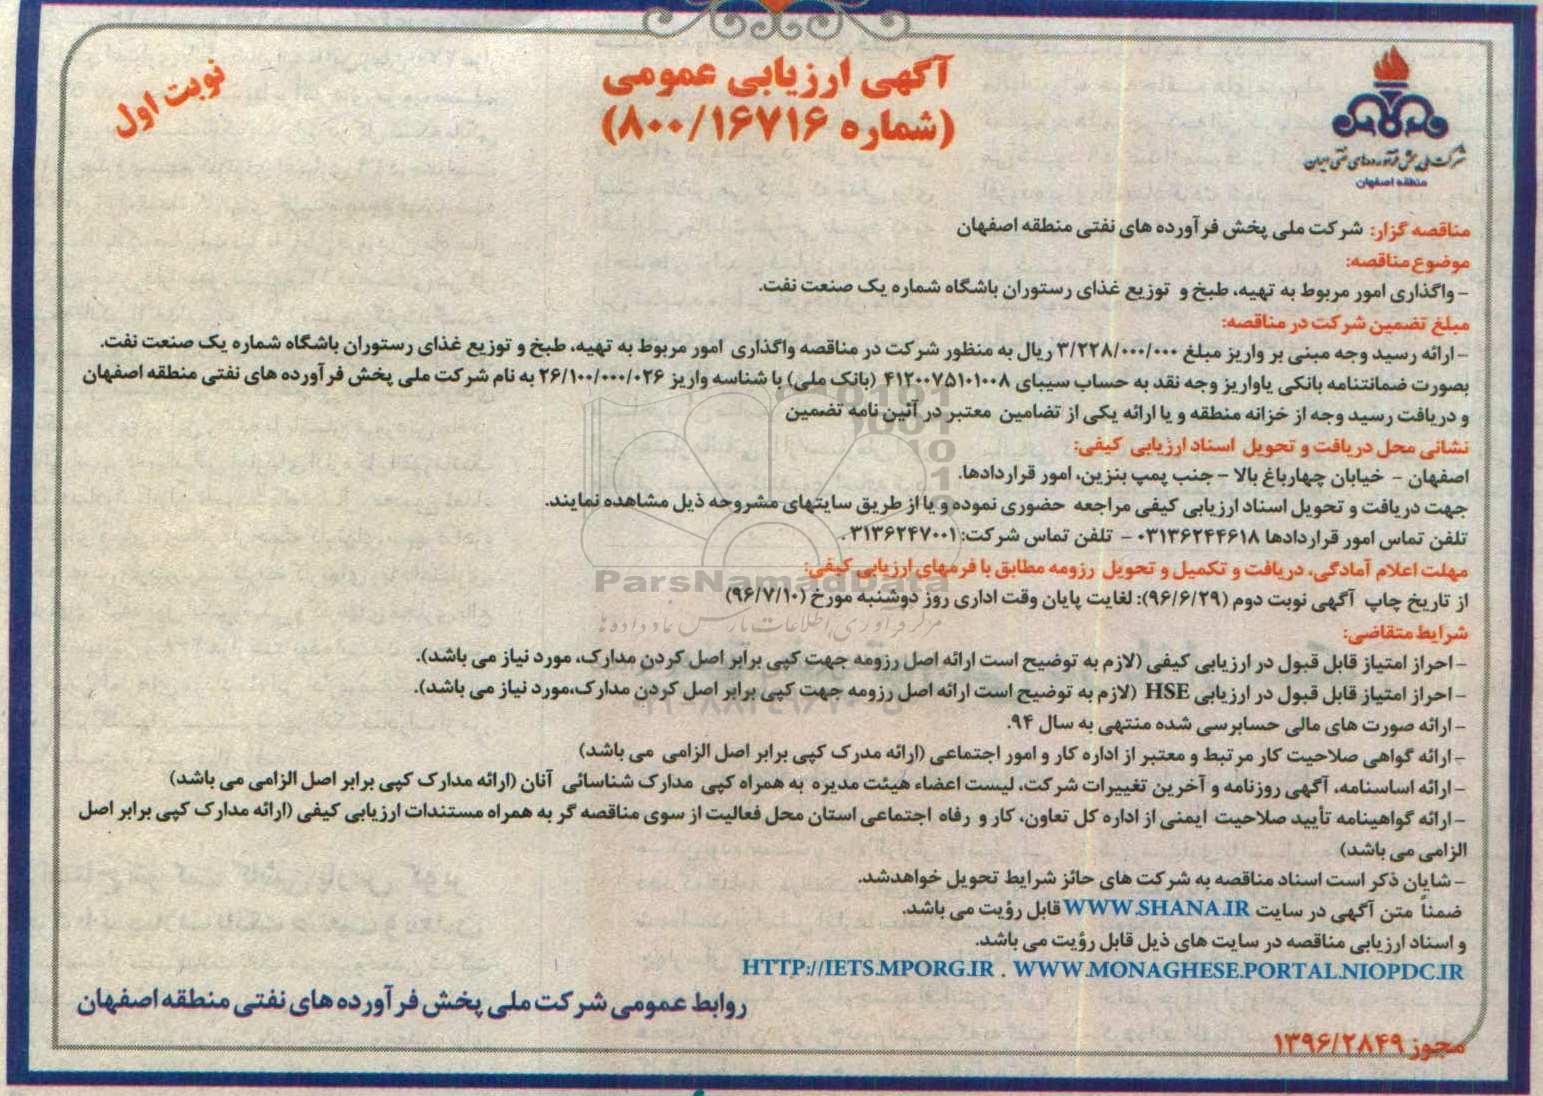 آگهی ارزیابی عمومی
(شماره ۸۰۰/۱۶۷۱۶)
نوبت اول
شرکت ملی پخش فرآورده‌های نفتی ایران
منطقه اصفهان
مناقصه گزار: شرکت ملی پخش فرآورده های نفتی منطقه اصفهان
موضوع مناقصه:
- واگذاری امور مربوط به تهیه، طبخ و توزیع غذای رستوران باشگاه شماره یک صنعت نفت.
مبلغ تضمین شرکت در مناقصه:
- ارائه رسید وجه مبنی بر واریز مبلغ ۳/۲۲۸/۰۰۰/۰۰۰ ریال به منظور شرکت در مناقصه واگذاری امور مربوط به تهیه، طبخ و توزیع غذای رستوران باشگاه شماره یک صنعت نفت.
بصورت ضمانتنامه بانکی یاواریز وجه نقد به حساب سیبای ۴۱۲۰۰۷۵۱۰۱۰۰۸ (بانک ملی) با شناسه واریز ۲۶/۱۰۰/۰۰۰/۰۲۶ به نام شرکت ملی پخش فرآورده های نفتی منطقه اصفهان
و دریافت رسید وجه از خزانه منطقه و یا ارائه یکی از تضامین معتبر در آئین نامه تضمین
نشانی محل دریافت و تحویل اسناد ارزیابی کیفی:
اصفهان - خیابان چهارباغ بالا - جنب پمپ بنزین، امور قراردادها.
جهت دریافت و تحویل اسناد ارزیابی کیفی مراجعه حضوری نموده و یا از طریق سایتهای مشروحه ذیل مشاهده نمایند.
تلفن تماس امور قراردادها ۰۳۱۳۶۲۴۴۶۱۸ - تلفن تماس شرکت: ۳۱۳۶۲۴۷۰۰۱ .
مهلت اعلام آمادگی، دریافت و تکمیل و تحویل رزومه مطابق با فرمهای ارزیابی کیفی:
از تاریخ چاپ آگهی نوبت دوم (۹۶/۶/۲۹): لغایت پایان وقت اداری روز دوشنبه مورخ (۹۶/۷/۱۰)
شرایط متقاضی:
- احراز امتیاز قابل قبول در ارزیابی کیفی (لازم به توضیح است ارائه اصل رزومه جهت کپی برابر اصل کردن مدارک، مورد نیاز می باشد).
- احراز امتیاز قابل قبول در ارزیابی HSE (لازم به توضیح است ارائه اصل رزومه جهت کپی برابر اصل کردن مدارک،مورد نیاز می باشد).
- ارائه صورت های مالی حسابرسی شده منتهی به سال ۹۴.
- ارائه گواهی صلاحیت کار مرتبط و معتبر از اداره کار و امور اجتماعی (ارائه مدرک کپی برابر اصل الزامی می باشد)
- ارائه اساسنامه، آگهی روزنامه و آخرین تغییرات شرکت، لیست اعضاء هیئت مدیره به همراه کپی مدارک شناسائی آنان (ارائه مدارک کپی برابر اصل الزامی می باشد)
- ارائه گواهینامه تأیید صلاحیت ایمنی از اداره کل تعاون، کار و رفاه اجتماعی استان محل فعالیت از سوی مناقصه گر به همراه مستندات ارزیابی کیفی (ارائه مدارک کپی برابر اصل
الزامی می باشد)
- شایان ذکر است اسناد مناقصه به شرکت های حائز شرایط تحویل خواهدشد.
ضمناً متن آگهی در سایت WWW.SHANA.IR قابل رؤیت می باشد.
و اسناد ارزیابی مناقصه در سایت های ذیل قابل رؤیت می باشد.
HTTP://IETS.MPORG.IR . WWW.MONAGHESE.PORTAL.NIOPDC.IR
روابط عمومی شرکت ملی پخش فرآورده های نفتی منطقه اصفهان
مجوز ۱۳۹۶/۲۸۴۹
ParsNamadData
مرکز فرآوری اطلاعات پارس نماد داده ها